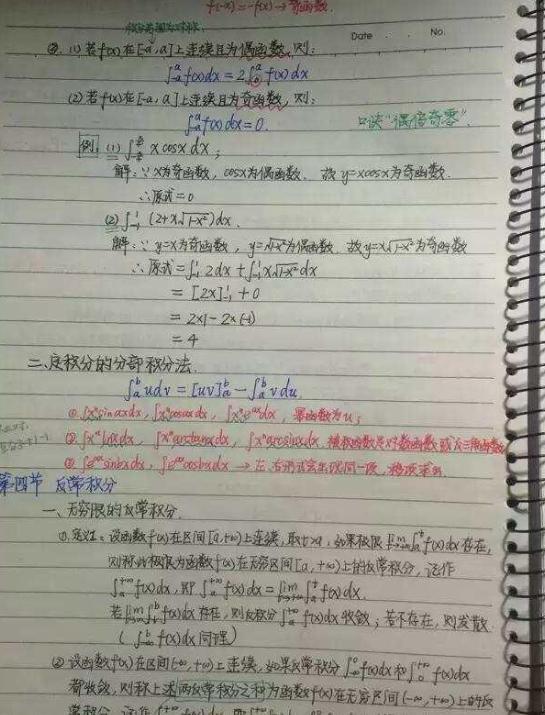 f(-x)=-f(x)→奇函数.
Date . . No.
②. (1) 若f(x)在[-a,a]上连续且为偶函数,则:
∫₋ₐᵃf(x)dx=2∫₀ᵃf(x)dx
(2) 若f(x)在[-a,a]上连续且为奇函数,则:
∫₋ₐᵃf(x)dx=0. 口诀“偶倍奇零”.
例: (1) x cosx dx;
解:∵x为奇函数,cosx为偶函数. 故y=xcosx为奇函数.
∴原式=0
(2) ∫₋₁¹(2+x√1-x²)dx.
解:∵y=x为奇函数,y=√1-x²为偶函数.故y=x√1-x²为奇函数
∴原式=∫₋₁¹2dx+∫₋₁¹x√1-x²dx
=[2x]₋₁¹+0
=2x1-2x(-1)
=4
二、定积分的分部积分法.
∫ₐᵇudv=[uv]ₐᵇ-∫ₐᵇvdu.
①∫xⁿsinaxdx,∫xⁿcosaxdx,∫xⁿeᵃˣdx, 幂函数为u;
②∫xⁿlnxdx,∫xⁿarctanxdx,∫xⁿarcsinxdx, 函数是对数函数或反三角函数
③∫eᵃˣsinbxdx,∫eᵃˣcosbxdx→左、右形式会出现同一项,
第四节 反常积分
一、无穷限的反常积分.
①.定义1:设函数f(x)在区间[a,+∞)上连续,取t>a,如果极限lim∫ₐᵗf(x)dx存在,
则称此极限为函数f(x)在无穷区间[a,+∞)上的反常积分,记作
∫ₐ⁺∞f(x)dx,即∫ₐ⁺∞f(x)dx=lim∫ₐᵗf(x)dx.
若lim∫ₐᵗf(x)dx存在,则反积分∫ₐ⁺∞f(x)dx收敛;若不存在,则发散.
(∫₋∞ᵇf(x)dx同理)
②设函数f(x)在区间(-∞,+∞)上连续,如果反常积分∫₋∞⁰f(x)dx和∫₀⁺∞f(x)dx
都收敛,则称上述两反常积分之和为函数f(x)在无穷区间(-∞,+∞)上的反
常积分,记作